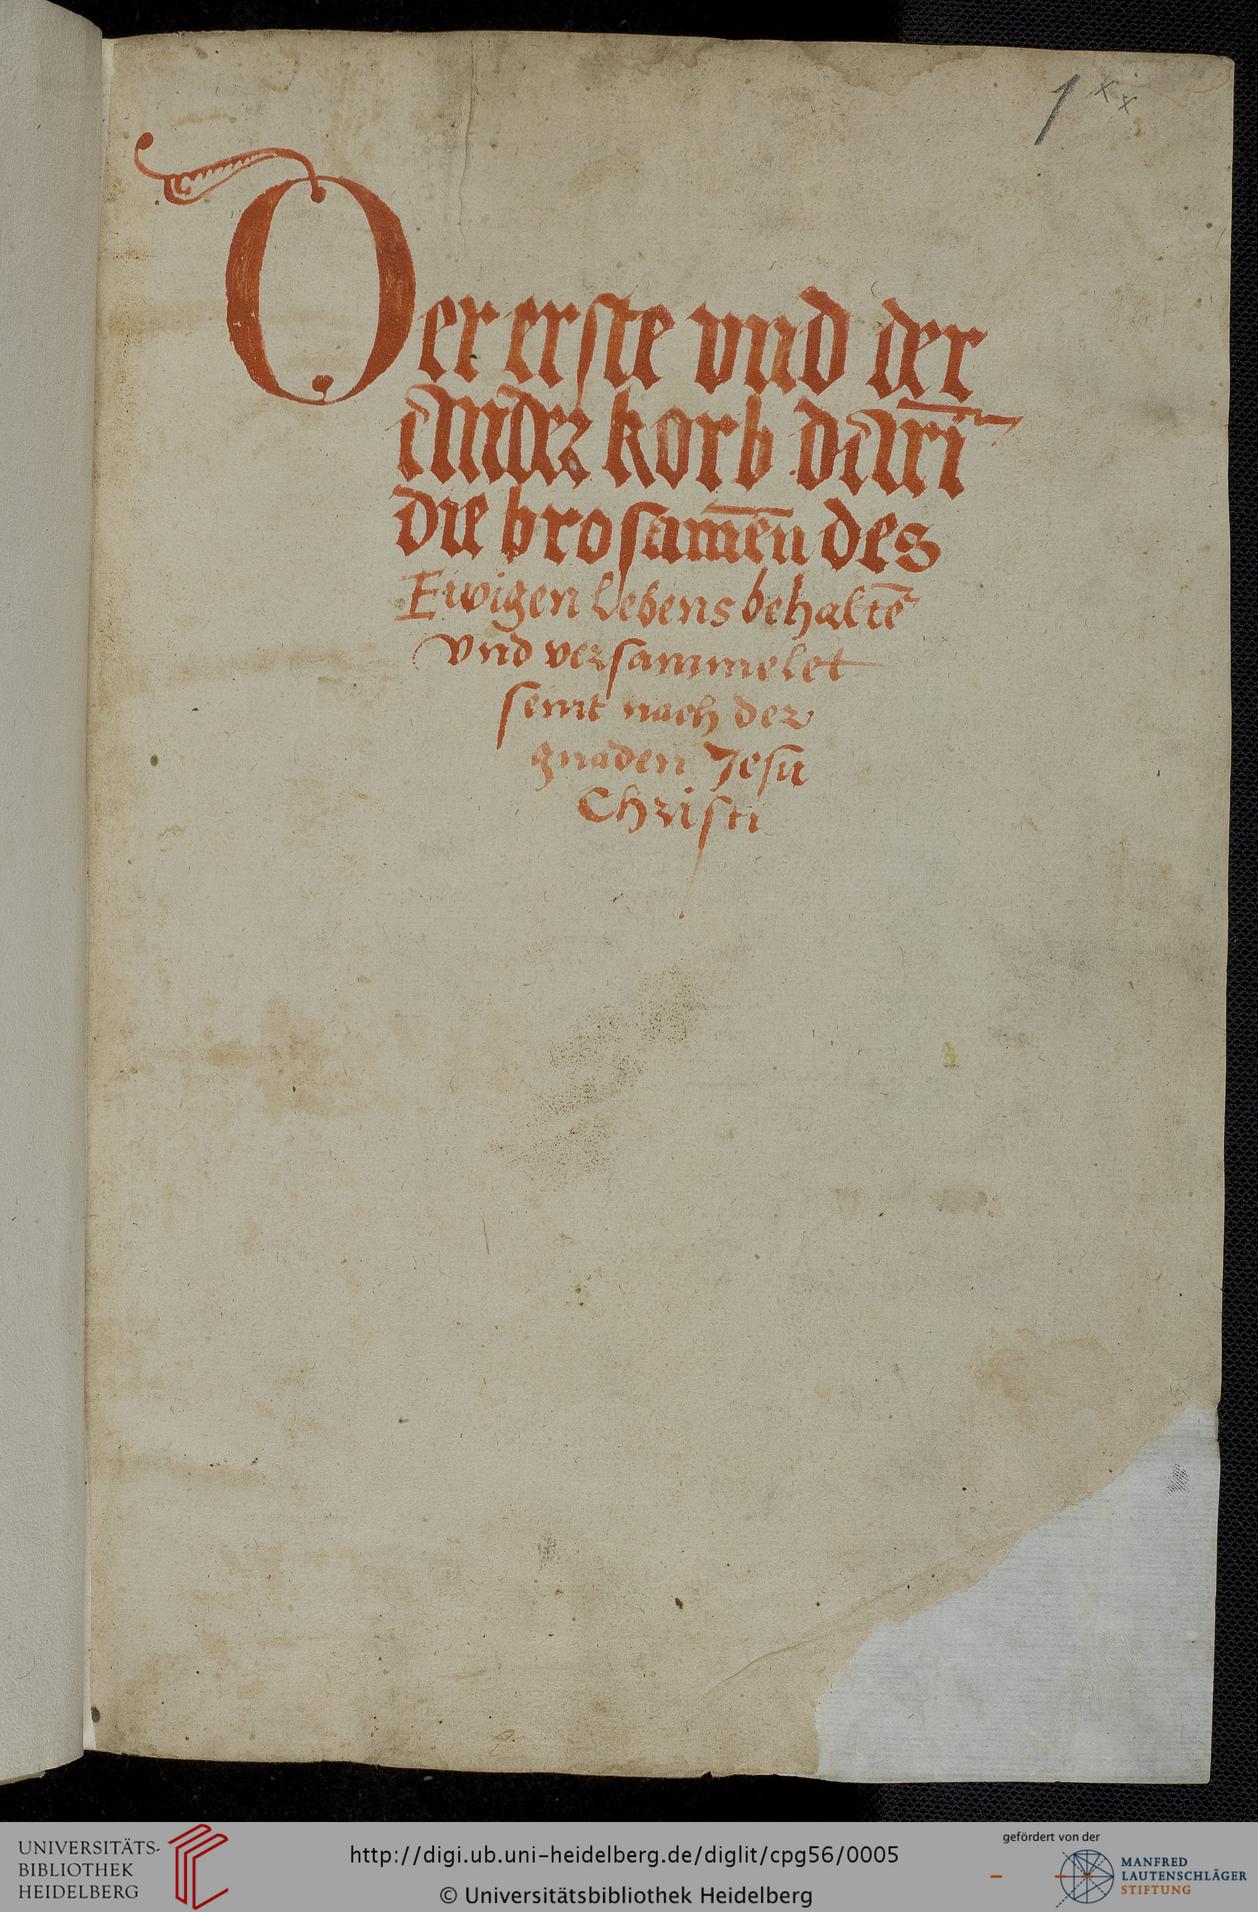 1 x x
Der erste vnd der
ander korb dari̅
die brosame̅n des
Ewigen lebens behalte̅
vnd versammelet
seint nach der
gnaden Jesu
Christi
UNIVERSITÄTS-
BIBLIOTHEK
HEIDELBERG
http://digi.ub.uni-heidelberg.de/diglit/cpg56/0005
© Universitätsbibliothek Heidelberg
gefördert von der
MANFRED
LAUTENSCHLÄGER
STIFTUNG